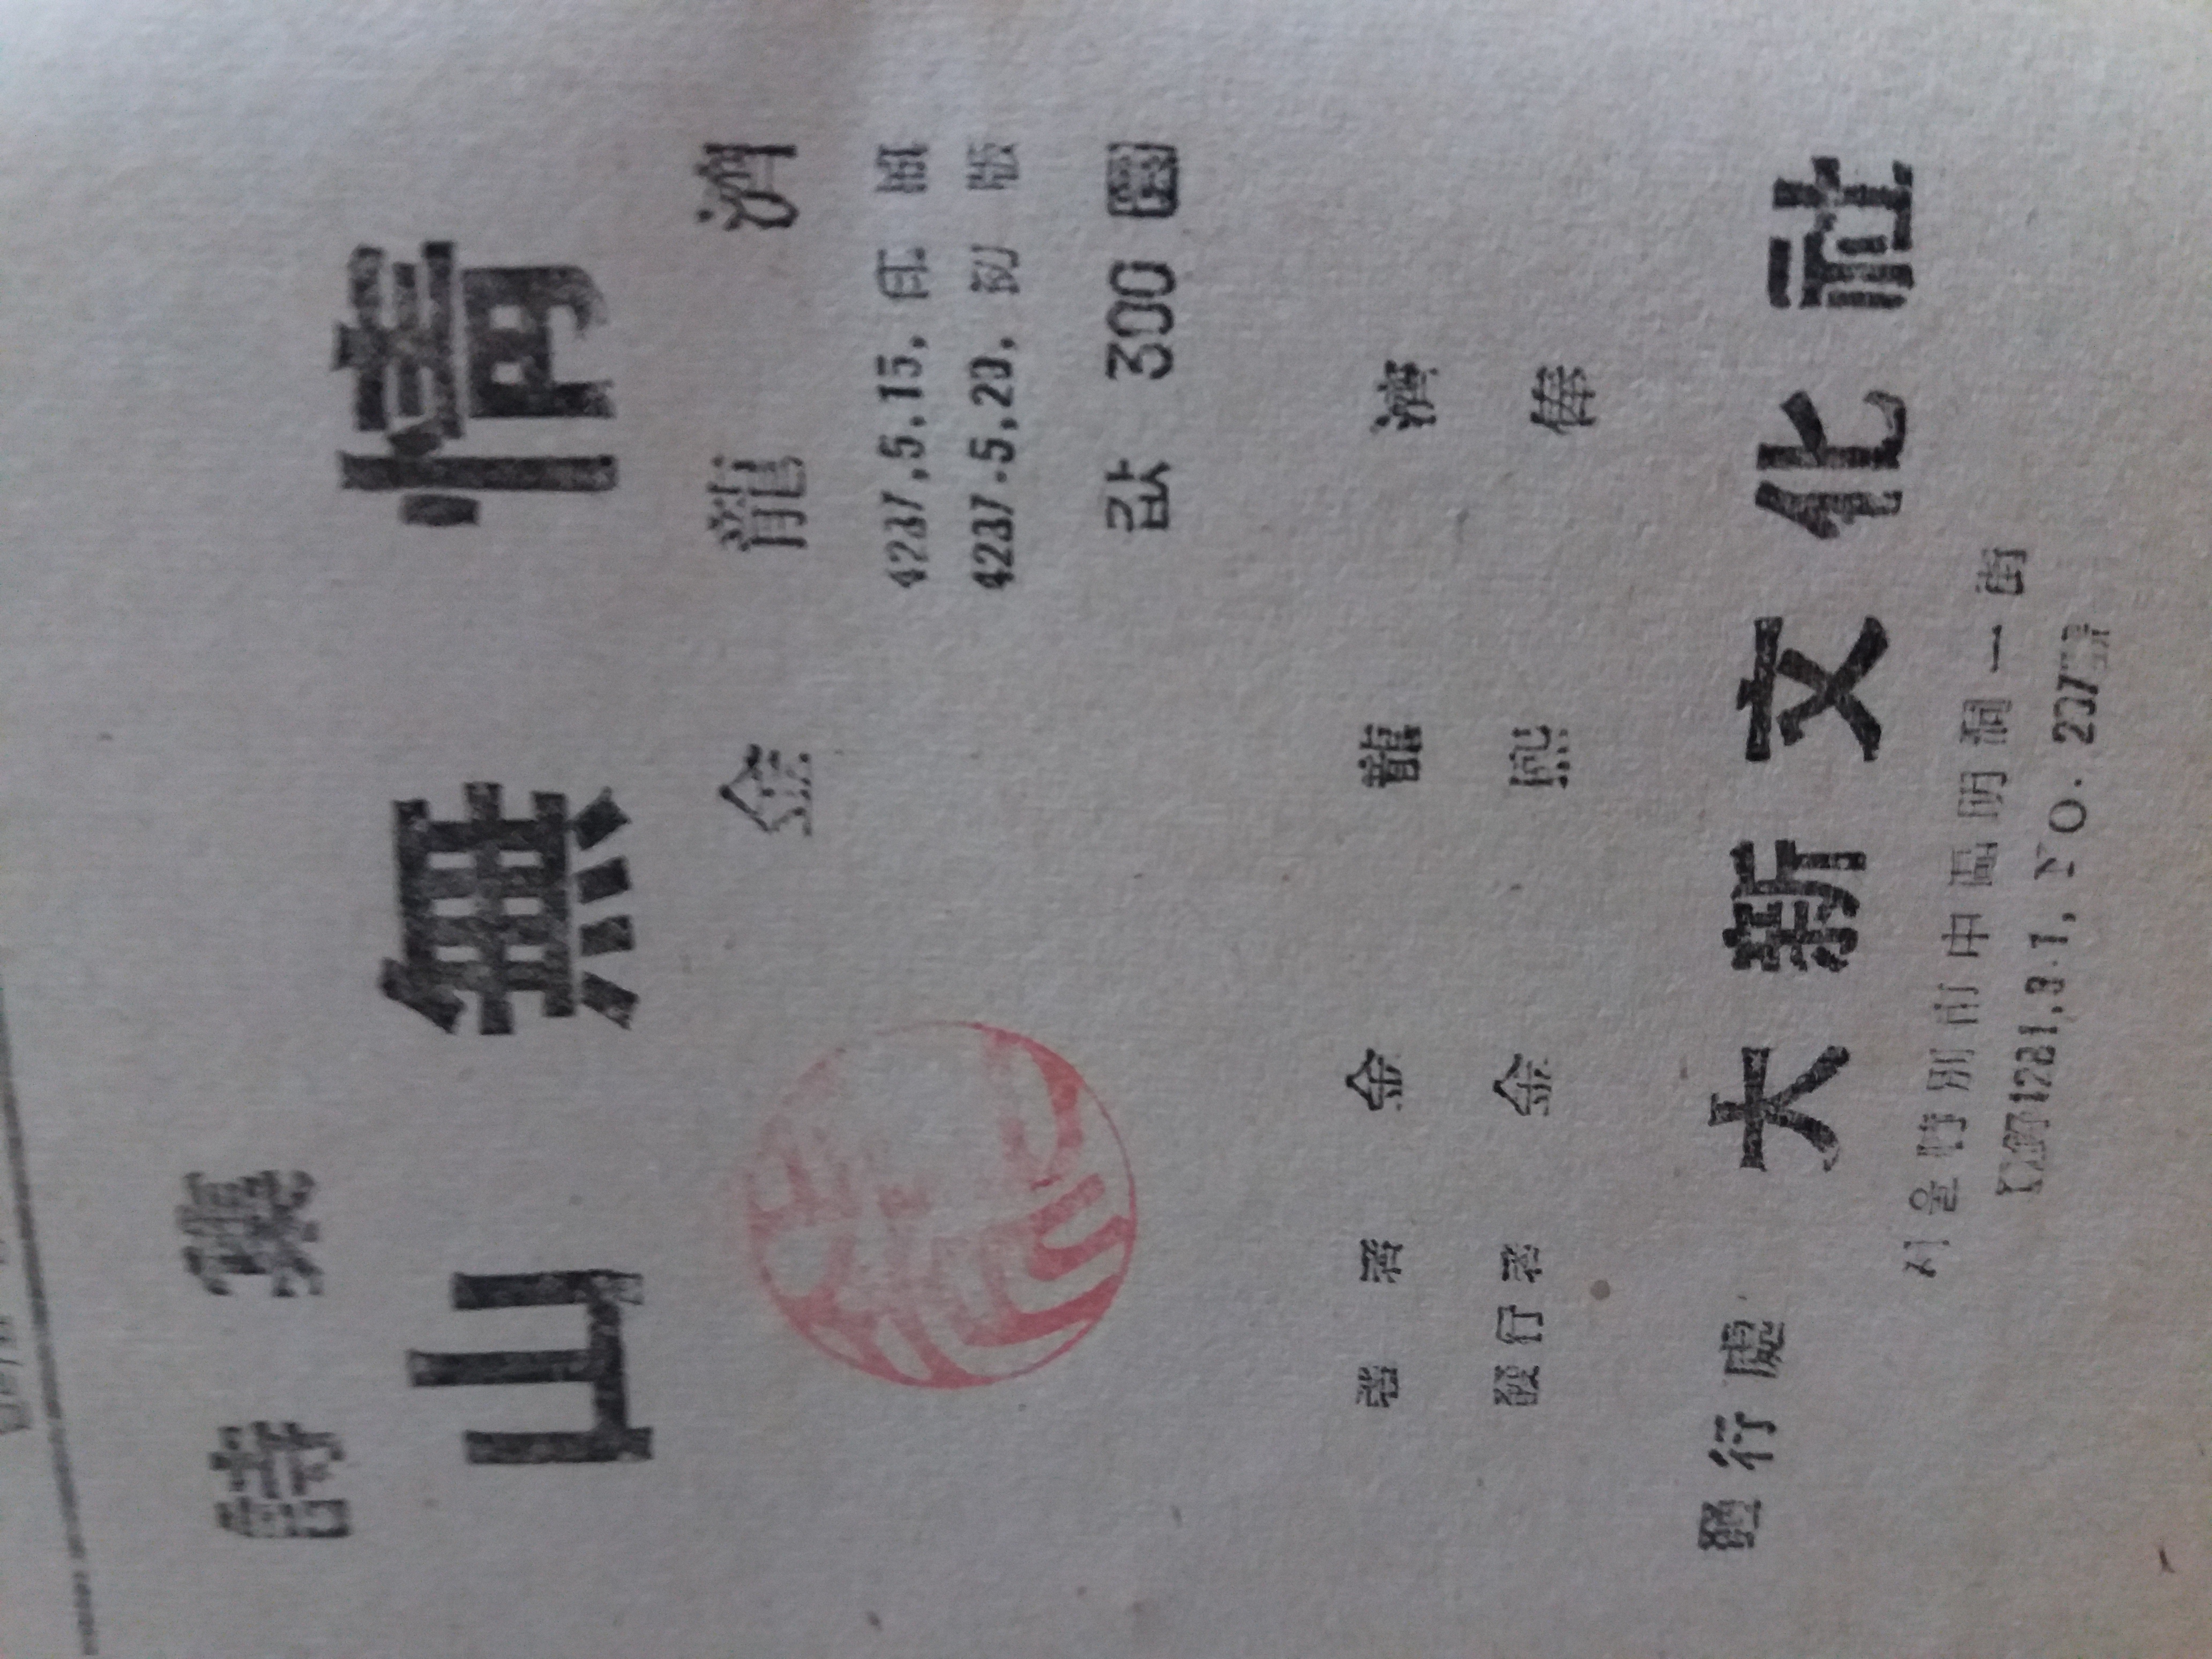 詩集
山無情
金龍濟
4287.5.15. 印刷
4287.5.20. 初版
값 300圜
著者 金龍濟
發行者 金熙俸
發行處 大新文化社
서울特別市中區明洞一街
1281.3.1. NO.